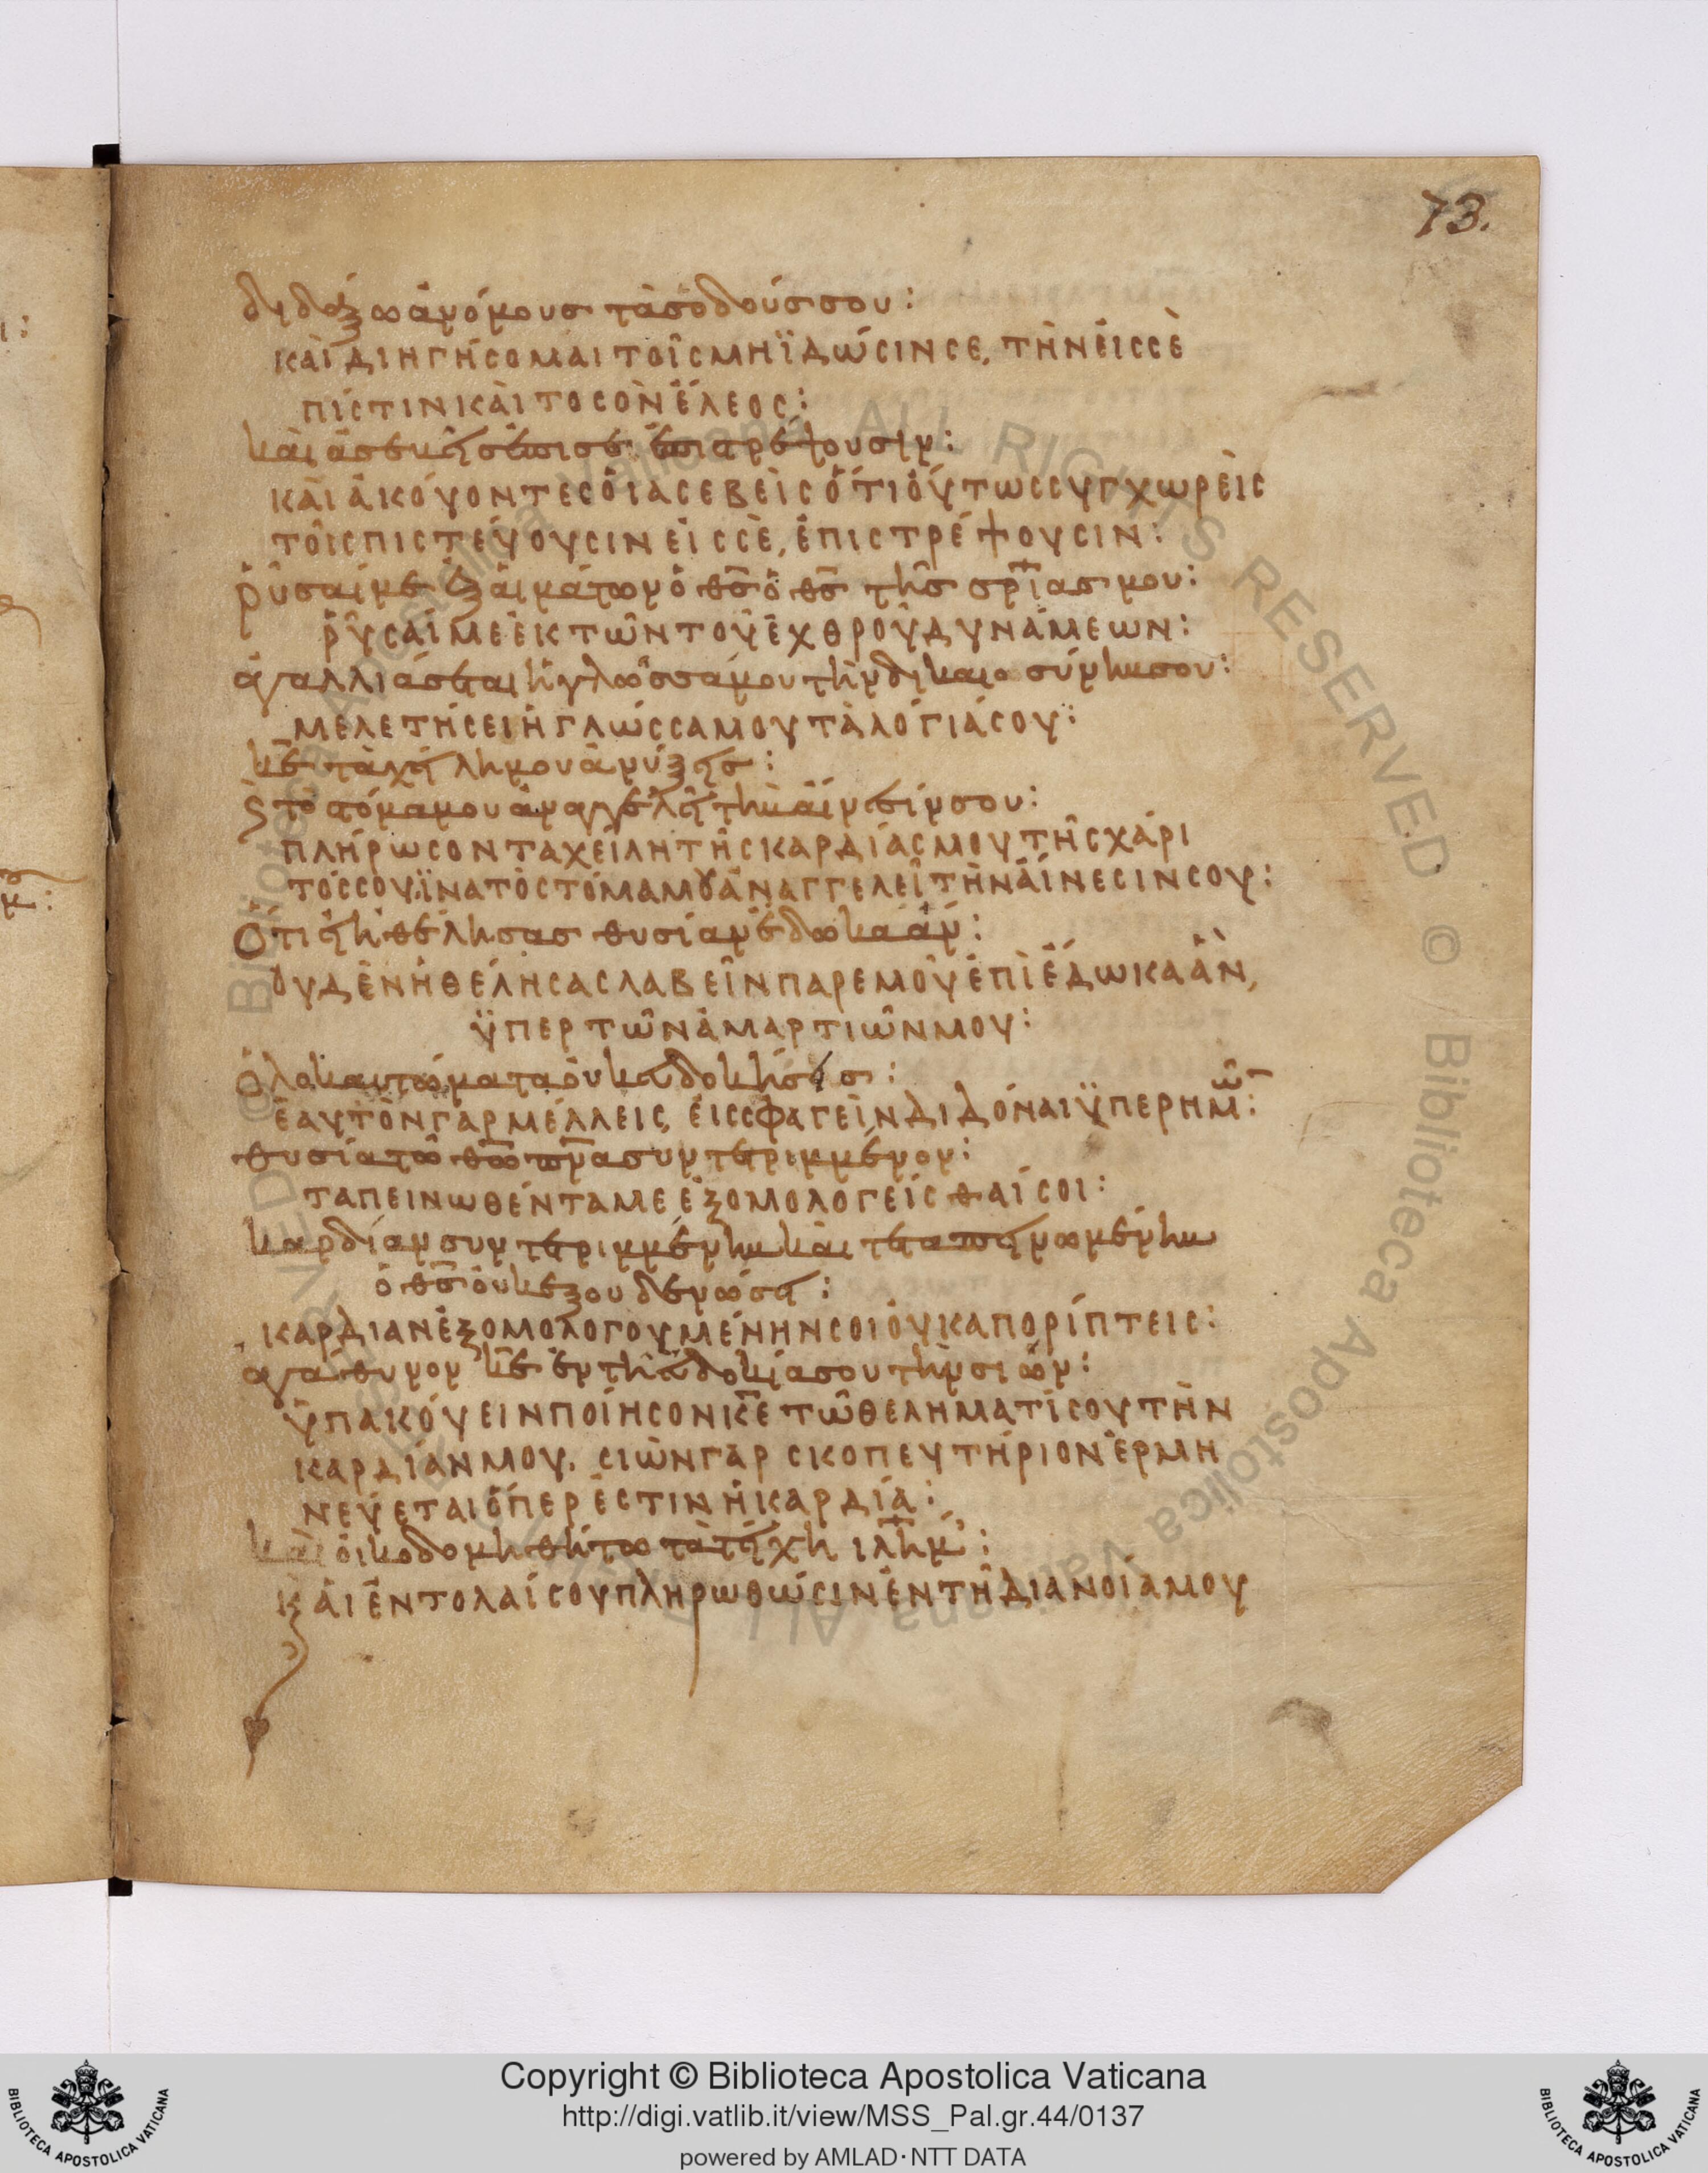 73.
διδάξω ἀνόμους τὰς ὁδούς σου:
καὶ διηγήσομαι τοῖς μὴ ϊδώσιν σε, τὴν εἰς σὲ
πίστιν καὶ το σὸν ἔλεος:
καὶ ἀσεβεῖς ἐπι σὲ ἐπιστρέψουσιν:
καὶ ἀκούοντες ὁι ασεβεὶς ὅτι ὁύτως συγχωρεὶς
τοῖς πιστεύουσιν εἰς σὲ, ἐπιστρέψουσιν:
ῥῦσαί με ἐξ ἁιμάτων ὁ θς ὁ θς τῆς σρίας μου:
ῥῦσαί με ἐκ τῶν τοῦ ἐχθροῦ δυνάμεων:
ἀγαλλιάσεται ἡ γλῶσσά μου τὴν δικαιοσύνην σου:
μελετήσει ἡ γλώσσα μου τὰ λόγιά σου:
κε τὰ χείλη μου ἀνύξεις:
ϗ τὸ στόμα μου ἀναγγελεῖ τὴν αἴνεσίν σου:
πλήρωσον τα χείλη τῆς καρδίας μου τῆς χάρι
τός σου, ϊνα τὸ στόμα μȣ ἀναγγελεῖ τὴν ἀίνεσιν σου:
Ὅτι εἰ ἠθέλησας θυσίαν ἔδωκα ἄν:
ουδὲν ἠθέλησας λαβεῖν παρ εμοῦ ἐπὶ ἔδωκα ἂν,
ϋπερ τῶν ἁμαρτιῶν μου:
Ὁλοκαυτώματα ὀυκ ευδοκήσεις:
ἑαυτὸν γαρ μέλλεις, εις σφαγεὶν διδόναι ϋπερ ημῶ:
θυσία τῶ θω πνα συντετριμμένον:
ταπεινωθέντα με ἐξομολογείσθαί σοι:
καρδίαν συντετριμμένην καὶ τεταπεινωμένην
ὁ θς ὀυκ εξουδενώσει:
καρδιαν ἐξομολογουμένην σοι ὀυκ απορίπτεις:
αγάθυνον κε ἐν τῆ ευδοκία σου τὴν σιών:
ὑπακούειν ποίησον κε τῶ θεληματί σου τὴν
καρδίαν μου. σιὼν γαρ σκοπευτήριον ἑρμη
νεύεται ὅπερ ἐστιν ἡ καρδία:
καὶ ὀικοδομηθήτω τὰ τείχη ιλημ:
κὰι ἐντολαί σου πληρωθώσιν ἐν τῆ διανοία μου
Copyright © Biblioteca Apostolica Vaticana
http://digi.vatlib.it/view/MSS_Pal.gr.44/0137
powered by AMLAD·NTT DATA
BIBLIOTECA APOSTOLICA VATICANA
BIBLIOTECA APOSTOLICA VATICANA